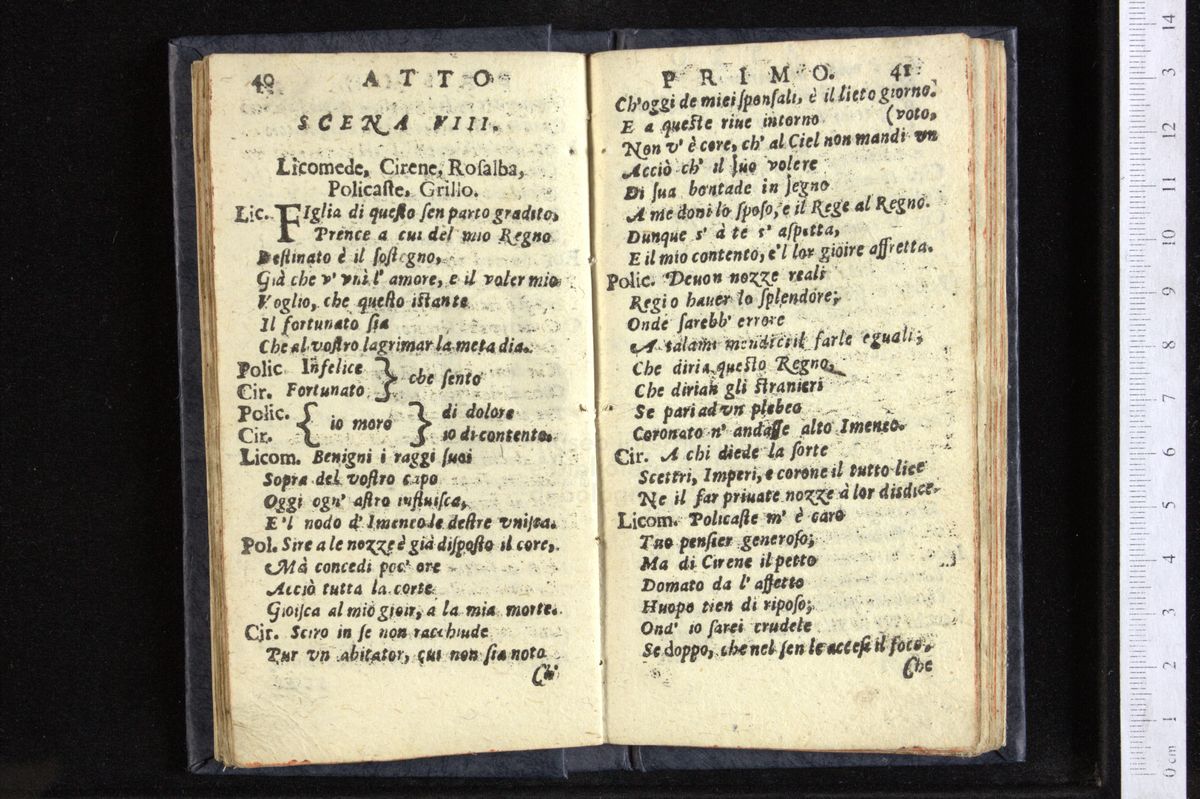 40 ATTO
SCENA VIII.
Licomede, Cirene, Rosalba,
Policaste, Grillo.
Lic. FIglia di questo sen parto gradito,
Prence a cui del mio Regno
Destinato è il sostegno,
Già che v' vnì l' amore, e il voler mio
Voglio, che questo istante
Il fortunato sia
Che al vostro lagrimar la meta dia.
Polic Infelice } che sento
Cir. Fortunato
Polic. { io moro } di dolore
Cir. io di contento.
Licom. Benigni i raggi suoi
Sopra del vostro capo
Oggi ogn' astro influisca,
E'l nodo d' Imeneo le destre vnisca.
Pol. Sire a le nozze è già disposto il core,
Mà concedi poc' ore
Acciò tutta la corte
Gioisca al mio gioir, a la mia morte.
Cir. Sciro in se non racchiude
Pur vn abitator, cui non sia noto
Ch'
PRIMO. 41
Ch'oggi de miei sponsali, è il lieto giorno.
E a queste riue intorno (voto,
Non v' è core, ch' al Ciel non mandi vn
Acciò ch' il suo volere
Di sua bontade in segno
A me doni lo sposo, e il Rege al Regno.
Dunque s' à te s' aspetta,
E il mio contento, e'l lor gioire affretta.
Polic. Deuon nozze reali
Regio hauer lo splendore;
Onde sarebb' errore
A talami mendici il farle eguali;
Che diria questo Regno,
Che dirian gli stranieri
Se pari ad vn plebeo
Coronato n' andasse alto Imeneo.
Cir. A chi diede la sorte
Scettri, Imperi, e corone il tutto lice
Ne il far priuate nozze à lor disdice.
Licom. Policaste m' è caro
Tuo pensier generoso;
Ma di Cirene il petto
Domato da l' affetto
Huopo tien di riposo;
Ond' io sarei crudele
Se doppo, che nel sen le accesi il foco,
Che